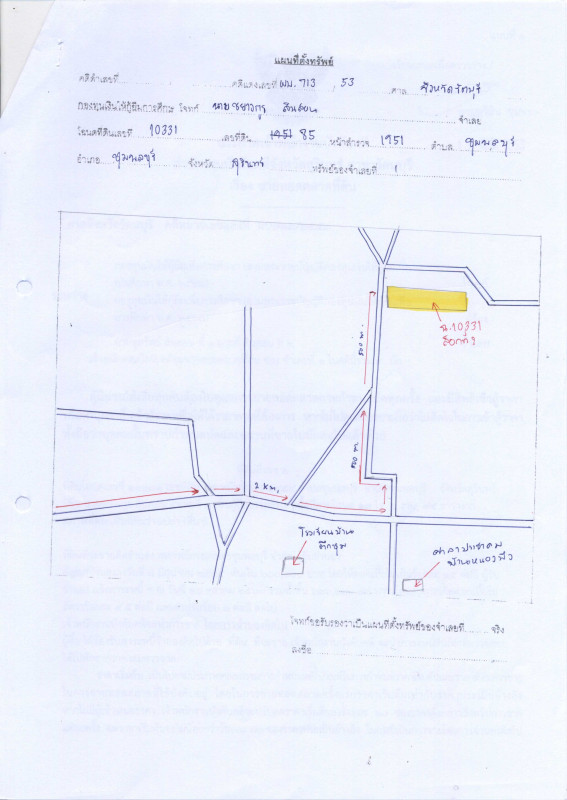 แผนที่ตั้งทรัพย์
คดีดำเลขที่ คดีแดงเลขที่ ผบ. 713 , 53 ศาล จังหวัดรัตนบุรี
กองทุนเงินให้กู้ยืมเพื่อการศึกษา โจทก์ นาย จำเลย
โฉนดที่ดินเลขที่ 10331 เลขที่ดิน 85 หน้าสำรวจ 1951 ตำบล ชุมพลบุรี
อำเภอ ชุมพลบุรี จังหวัด สุรินทร์ ทรัพย์ของจำเลยที่ 1
ฉ.10331
500 ม.
500 ม.
2 km.
โรงเรียนบ้าน
ตึกชุม
ศาลาประชาคม
โจทก์ขอรับรองว่าเป็นแผนที่ตั้งทรัพย์ของจำเลยที่ จริง
ลงชื่อ